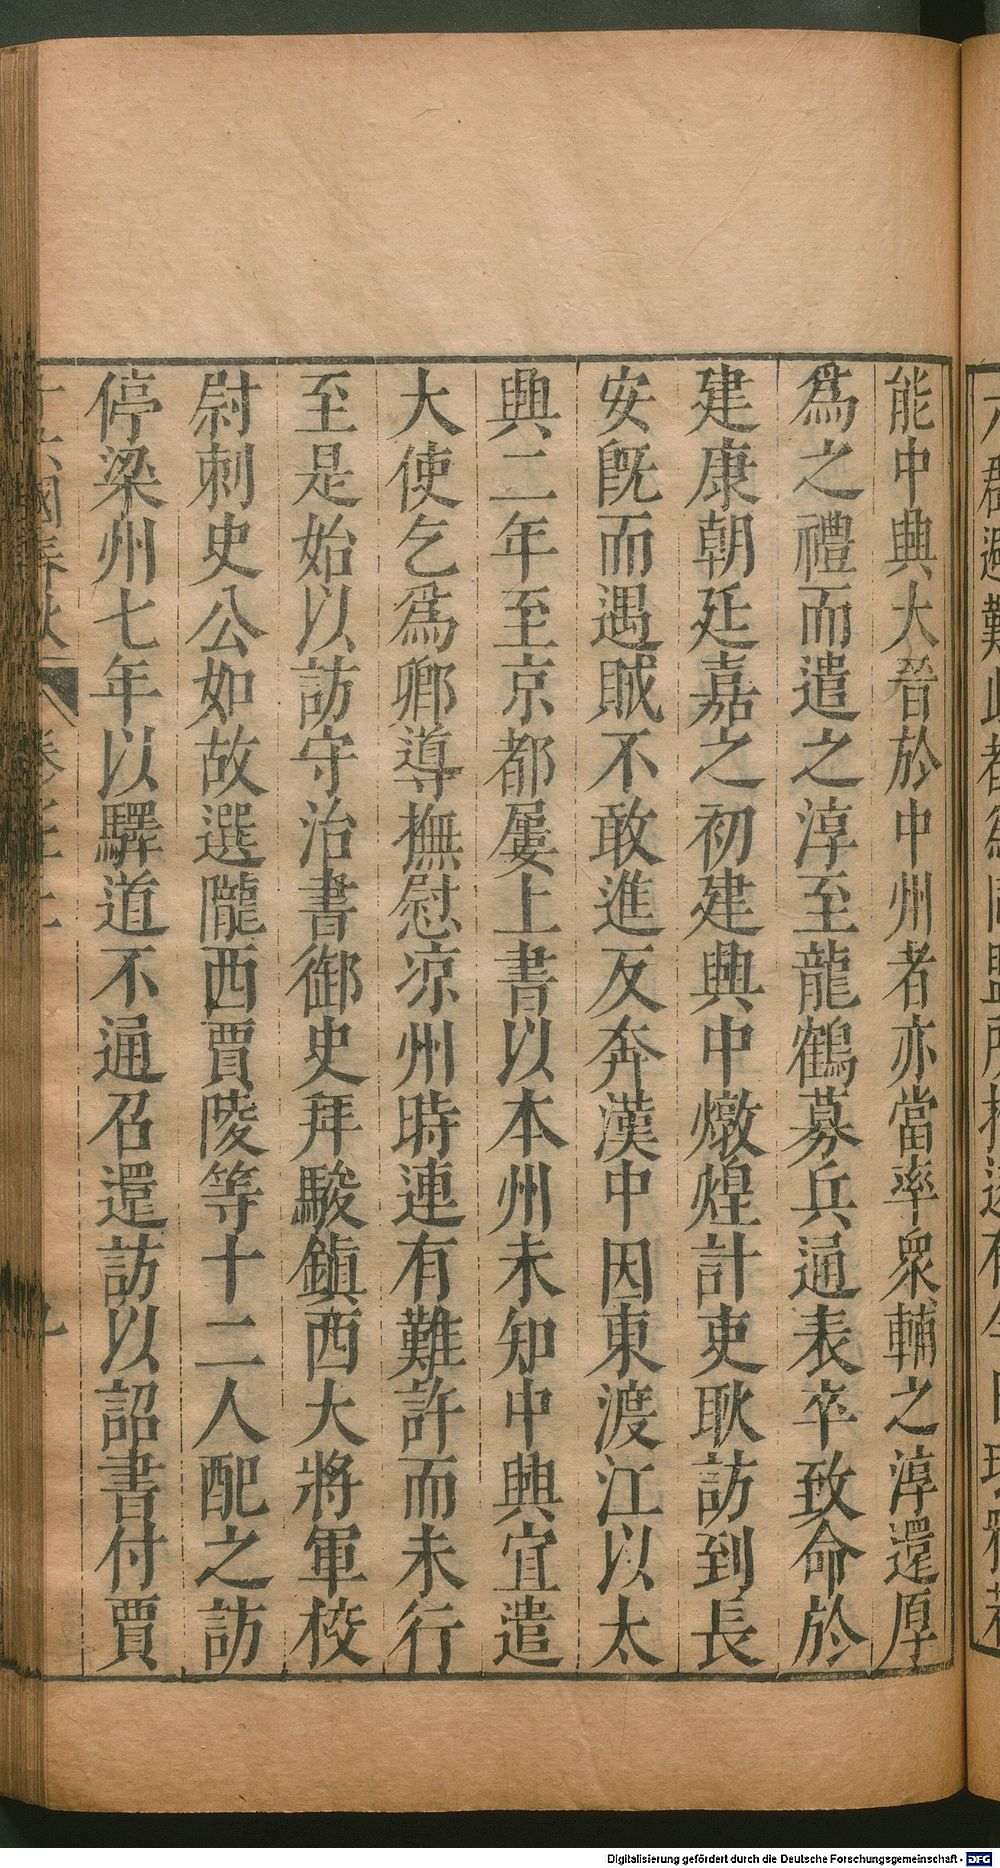 能中興大晉於中州者亦當率衆輔之淳還厚
爲之禮而遣之淳至龍鶴募兵通表卒致命於
建康朝廷嘉之初建興中燉煌計吏耿訪到長
安旣而遇賊不敢進反奔漢中因東渡江以太
興二年至京都屢上書以本州未知中興宜遣
大使乞爲鄉導撫慰涼州時連有難許而未行
至是始以訪守治書御史拜駿鎮西大將軍校
尉刺史公如故選隴西賈陵等十二人配之訪
停梁州七年以驛道不通召還訪以詔書付賈
十六國春秋
Digitalisierung gefördert durch die Deutsche Forschungsgemeinschaft - DFG